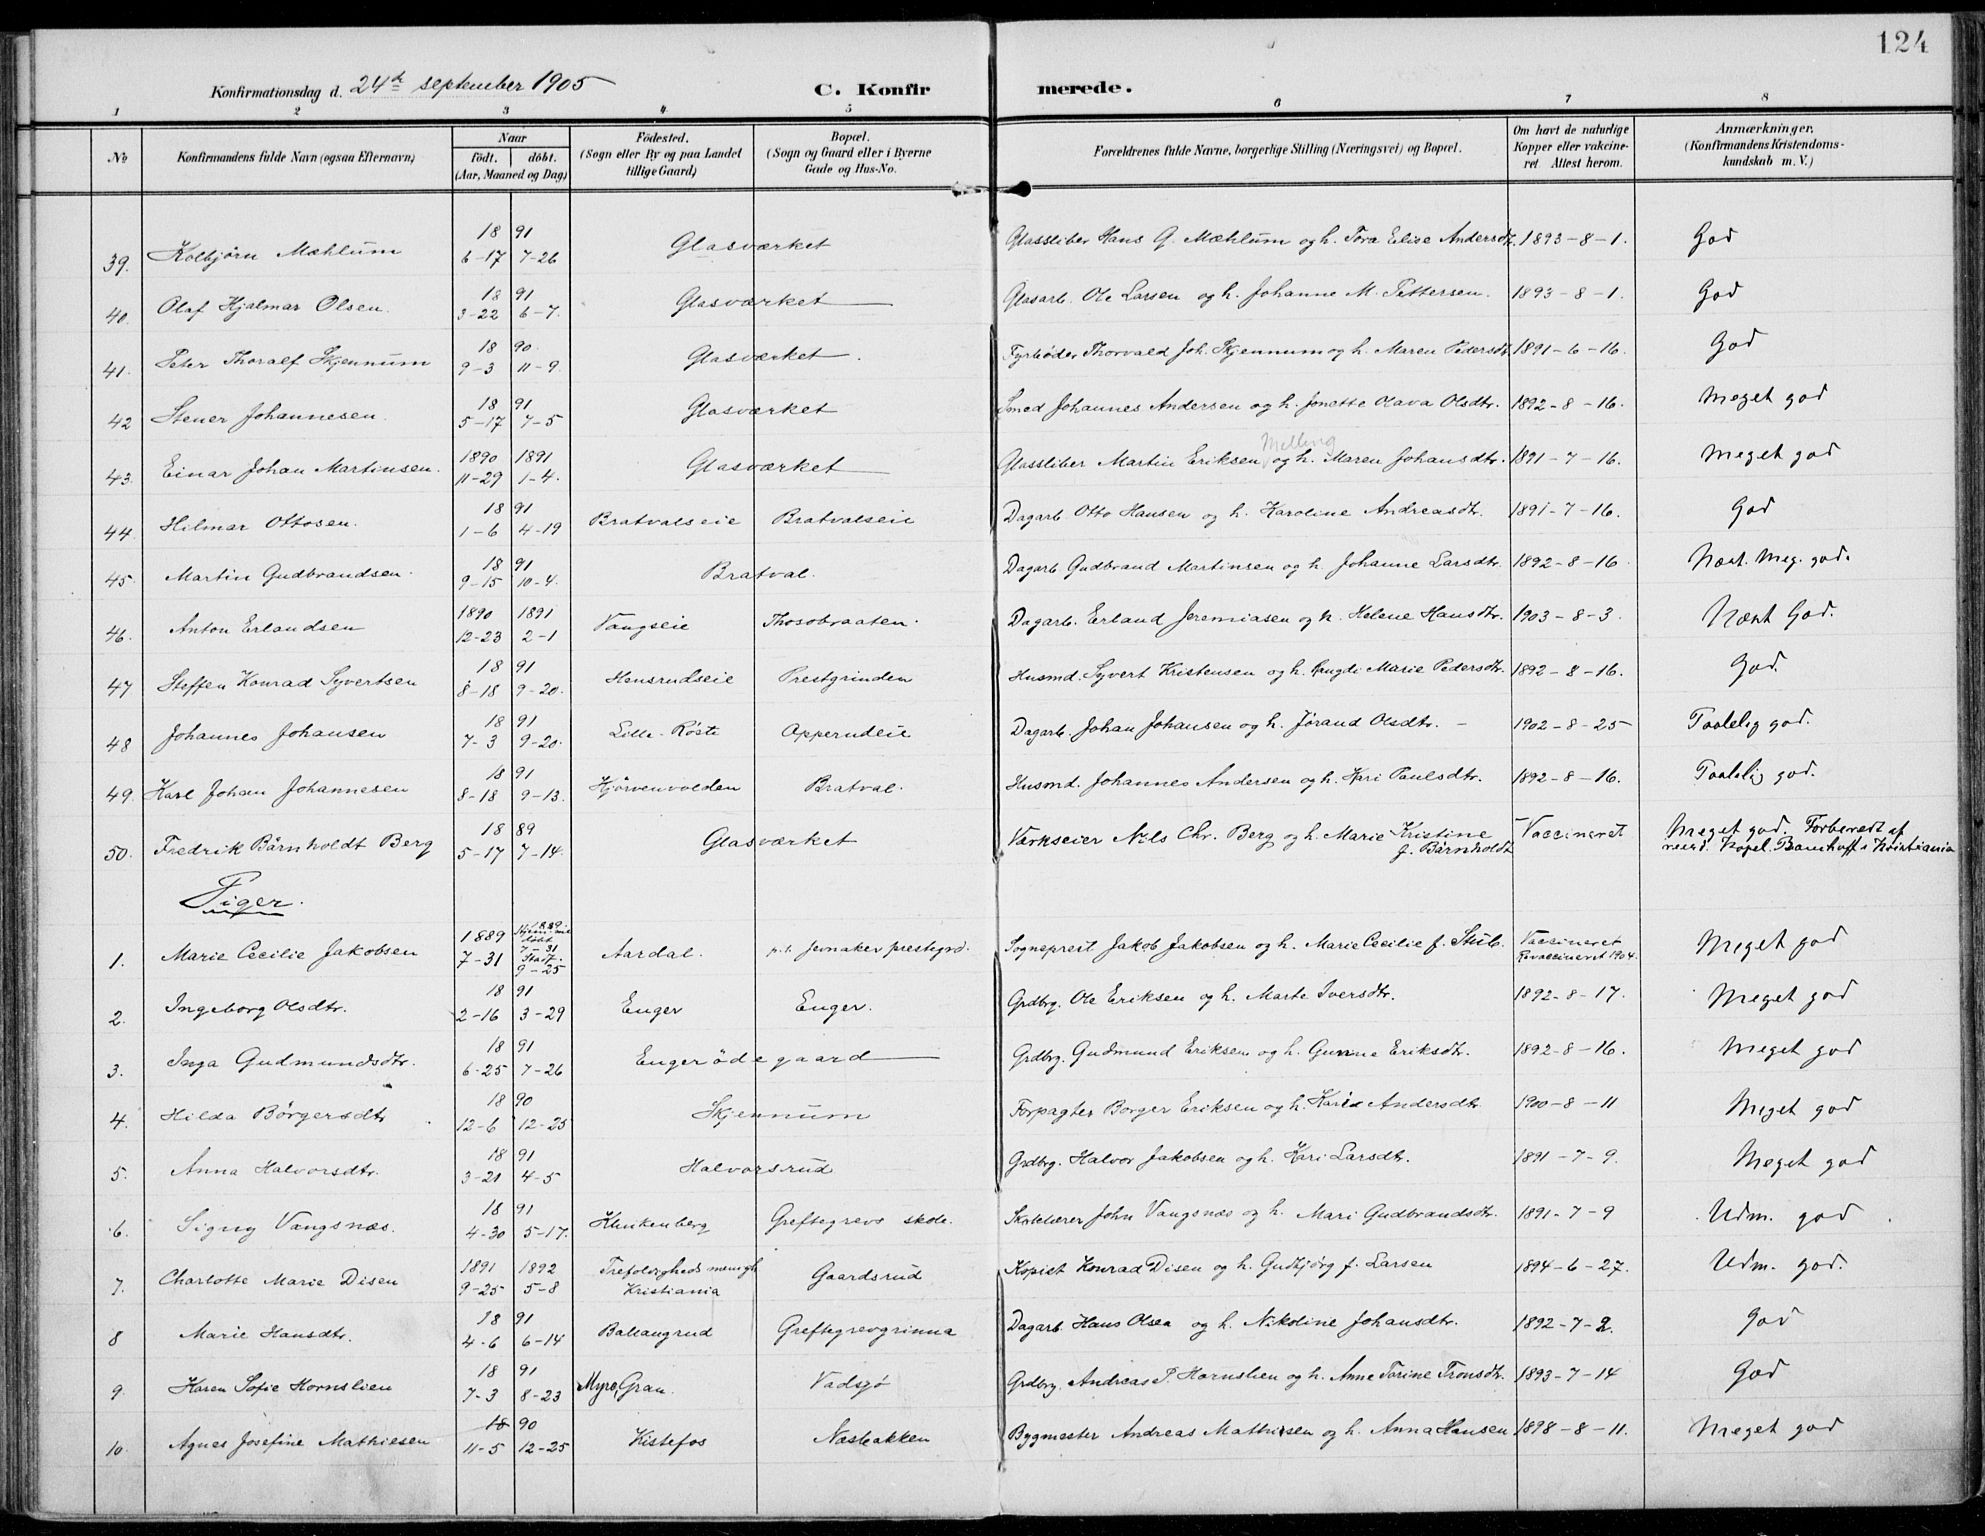 124
Konfirmationsdag d. 24de september 1905 C. Konfirmerede.
1 2 3 4 5 6 7 8
No Konfirmandens fulde Navn (ogsaa Efternavn) Naar födt. döbt. (Aar, Maaned og Dag) Födested. (Sogn eller By og paa Landet tillige Gaard) Bopæl. (Sogn og Gaard eller i Byerne Gade og Hus-No. Forældrenes fulde Navne, borgerlige Stilling (Næringsvei) og Bopæl. Om havt de naturlige Kopper eller vakcineret Attest herom. Anmærkninger. (Konfirmandens Kristendomskundskab m. V.)
39. Kolbjørn Mæhlum 18 91 6-17 7-26 Glasværket Glassliber Hans G. Mæhlum og h. Tora Elise Andersdtr. 1893-8-1. God
40. Olaf Hjalmar Olsen. 18 91 3-22 6-7. Glasværket Glasarb. Ole Larsen og h. Johanne M. Pettersen. 1893-8-1. God
41. Peter Thoralf Skjennum 18 90. 9-3 11-9. Glasværket. Fyrbøder Thorvald Joh. Skjennum og h. Maren Pedersdtr. 1891-6-16. God
42 Stener Johannesen. 18 91 5-17 7-5 Glasværket Smed Johannes Andersen og h. Jonette Olava Olsdtr. 1892-8-16. Meget god
43. Einar Johan Martinsen. 1890 1891 11-29 1-4. Glasværket Glassliber Martin Eriksen Melling og h. Maren Johansdtr. 1891-7-16. Meget god
44. Hilmar Ottosen. 18 91 1-6 4-19 Bratvalseie Bratvalseie Dagarb. Otto Hansen og h. Karoline Andreasdtr. 1891-7-16. God
45. Martin Gudbrandsen. 18 91 9-15 10-4. Bratval. Dagarb. Gudbrand Martinsen og h. Johanne Larsdtr. 1892-8-16. Næst. Meg. god.
46. Anton Erlandsen 1890 1891 12-23 2-1 Vangseie Thosobraaten. Dagarb. Erland Jeremiasen og h. Helene Hansdtr. 1903-8-3. Næst God.
47 Steffen Konrad Syvertsen 18 91 8-18 9-20. Hensrudseie Prestgrinden Husmd. Syvert Kristensen og h. Marie Pedersdtr. 1892-8-16. God.
48 Johannes Johansen 18 91 7-3 9-20. Lille-Røste Opperudeie Dagarb. Johan Johansen og h. Jørand Olsdtr. - 1902-8-25 Taalelig god.
49. Karl Johan Johannesen 18 91 8-18 9-13. Hjörvenvolden Bratval. Husmd. Johannes Andersen og h. Kari Paulsdtr. 1892-8-16. Taalelig god.
50. Fredrik Bärnholdt Berg 18 89 5-17 7-14. Glasværket Værkseier Nils Chr. Berg og h. Marie Kristine f. Bärnholdt Vaccineret Meget god. Forberedt af resid. Kapel. i Kristiania
Piger.
1. Marie Cecilie Jakobsen 1889 7-31 Hjemme døbt 7-31 Stadf. 9-25 Aardal. p.t. Jevnaker prestegrd. Sogneprest Jakob Jakobsen og h. Marie Cecilie f. Stub. Vaccineret Revaccineret 1904. Meget god
2. Ingeborg Olsdtr. 18 91 2-16 3-29 Enger Enger. Grdbrg. Ole Eriksen og h. Marte Iversdtr. 1892-8-17. Meget god
3. Inga Gudmundsdtr. 18 91 6-25 7-26 Engerödegaard Grdbrg. Gudmund Eriksen og h. Gunne Eriksdtr. 1892-8-16. Meget god
4. Hilda Börgersdtr 18 90 12-6 12-25 Skjennum Forpagter Borger Eriksen og h. Karie Andersdtr. 1900-8-11 Meget god
5. Anna Halvorsdtr. 18 91 3-21 4-5 Halvorsrud Grdbrg. Halvor Jakobsen og h. Kari Larsdtr. 1891-7-9. Meget god
6. Signy Vangsnæs. 18 91 4-30 5-17. Klinkenberg Greftegrevs skole. Skolelærer John Vangsnæs og h. Mari Gudbrandsdtr. 1891-7-9 Udm. god
7. Charlotte Marie Disen 1891 1892 9-25 5-8 Trefoldigheds menigh. Kristiania Gaardsrud Kopist Konrad Disen og h. Gudbjørg f. Larsen 1894-6-27. Udm. god.
8 Marie Hansdtr. 18 91 4-6 6-14 Ballangrud Greftegrevgrinna Dagarb. Hans Olsen og h. Nikoline Johansdtr. 1892-7-2. God
9. Karen Sofie Hornslien 18 91 7-3 8-23 Myre, Gran. Vadsjø Grdbrg. Andreas P. Hornslien og h. Anne Torine Tronsdtr. 1893-7-14 God
10. Agnes Josefine Mathiesen 18 90 11-5 12-25 Kistefos Næsbakken Bygmester Andreas Mathisen og h. Anna Hansen 1898-8-11. Meget god